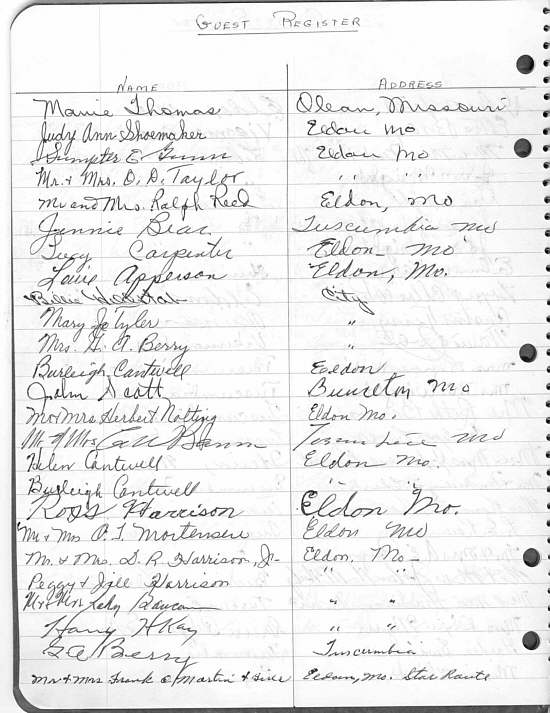 GUEST REGISTER
NAME ADDRESS
Mamie Thomas Olean, Missouri
Judy Ann Shoemaker Eldon Mo
Sumpter E. Gunn Eldon Mo
Mr. & Mrs. O. D. Taylor " "
Mr and Mrs. Ralph Reed Eldon, Mo
Jennie Bear Tuscumbia Mo
Lucy Carpenter Eldon - Mo
Apperson Eldon, Mo.
Billie City
Mary Jo Tyler "
Mrs. G. A. Berry "
Burleigh Cantwell Eldon
John Scott Mo
Mr & Mrs Herbert Notting Eldon Mo.
Mr & Mrs Mo
Helen Cantwell Eldon Mo.
Burleigh Cantwell " "
Ross Harrison Eldon Mo.
Mr & Mrs O. T. Mortensen Eldon Mo
Mr. & Mrs. D. R. Harrison, Jr. Eldon, Mo -
Peggy & Jill Harrison " "
Mr & Mrs " "
Harry H Kay " "
G A Berry Tuscumbia
Mr & Mrs Frank O Martin & Eldon, Mo. Star Route